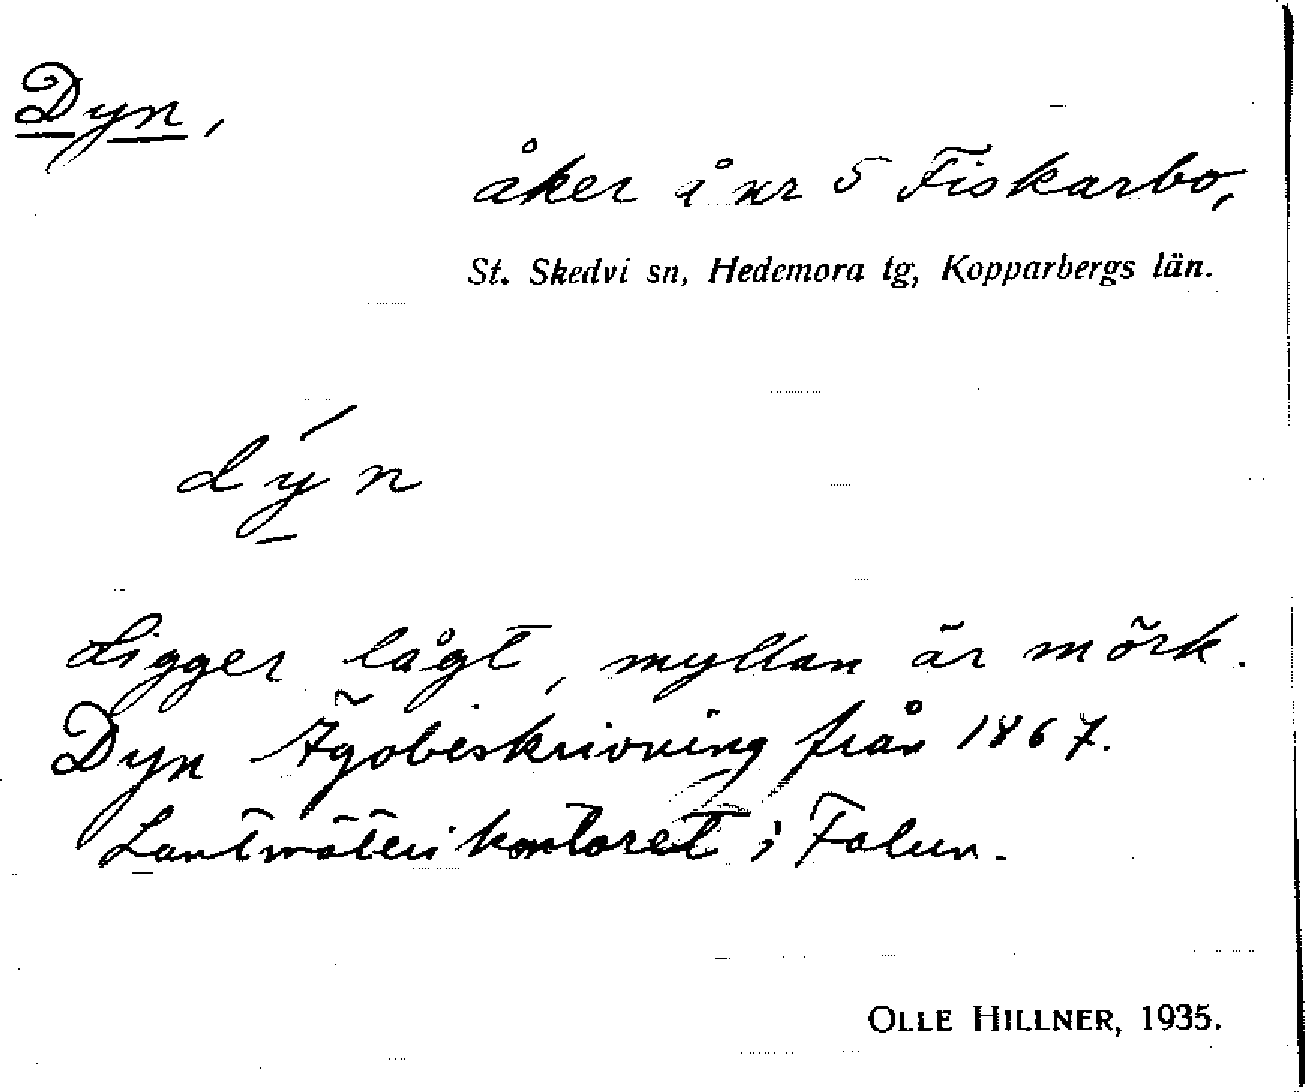 Dyn,
åker å nr 5 Fiskarbo,
St. Skedvi sn, Hedemora tg, Kopparbergs län.
dýn
Ligger lågt, myllan är mörk.
Dyn Ägobeskrivning från 1867.
Lantmäterikontoret i Falun.
OLLE HILLNER, 1935.